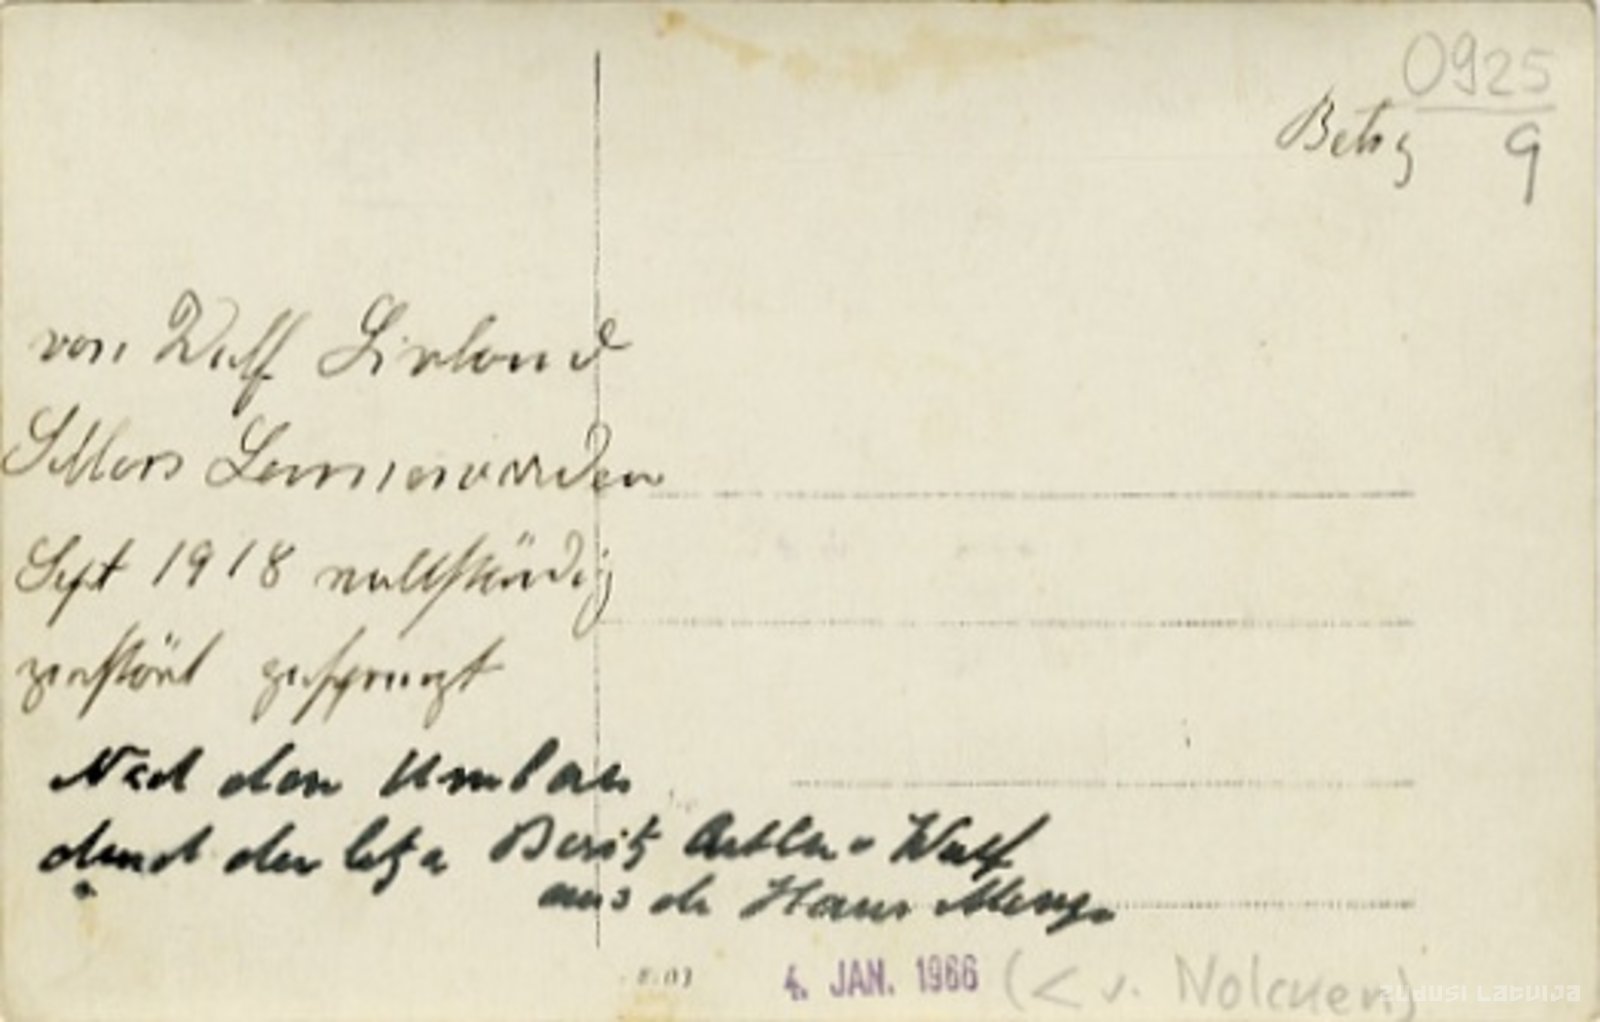 0925
Betrg 9
von Wulf Livland
Schloss Lennewarden
Sept 1918 vollständig
zerstört gesprengt
Nach dem Umbau
durch den letzten Besitz v Wulf
aus de Haus Menzen
4. JAN. 1966 (< v. Nolcken)
ZUDUSI LATVIJA